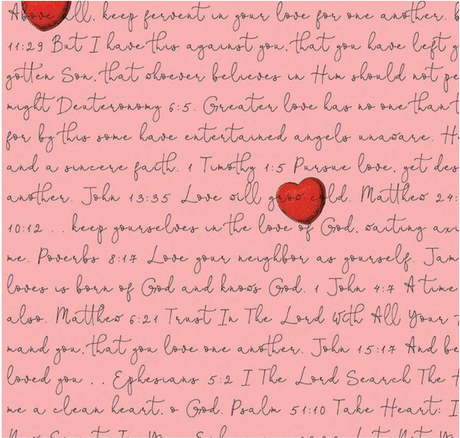 Above all, keep fervent in your love for one another, b
11:29 But I have this against you, that you have left y
gotten Son, that whoever believes in Him should not pe
might Deuteronomy 6:5. Greater love has no one than t
for by this some have entertained angels unaware. H
and a sincere faith. 1 Timothy 1:5 Pursue love, yet des
another. John 13:35 Love will grow cold. Matthew 24:
10:12 . . keep yourselves in the love of God, waiting an
me. Proverbs 8:17 Love your neighbor as yourself. Jam
loves is born of God and knows God. 1 John 4:7 A time
also. Matthew 6:21 Trust In The Lord With All Your
mand you, that you love one another. John 15:17 And be
loved you . . Ephesians 5:2 I The Lord Search The H
me a clean heart, o God. Psalm 51:10 Take Heart; I